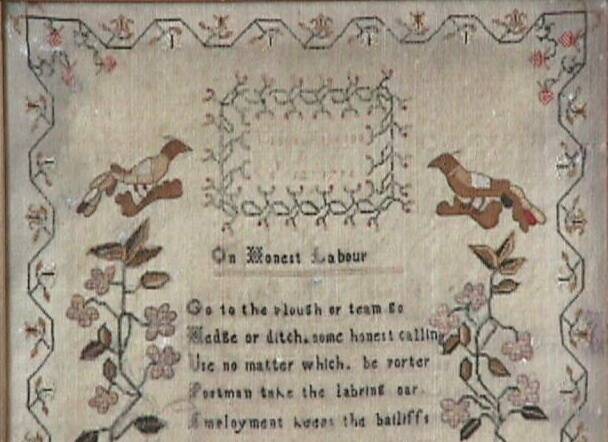 On Honest Labour
Go to the plough or team go
Hedge or ditch. some honest calling
Use no matter which. be porter
Postman take the labring oar
Employment keeps the bailiffs